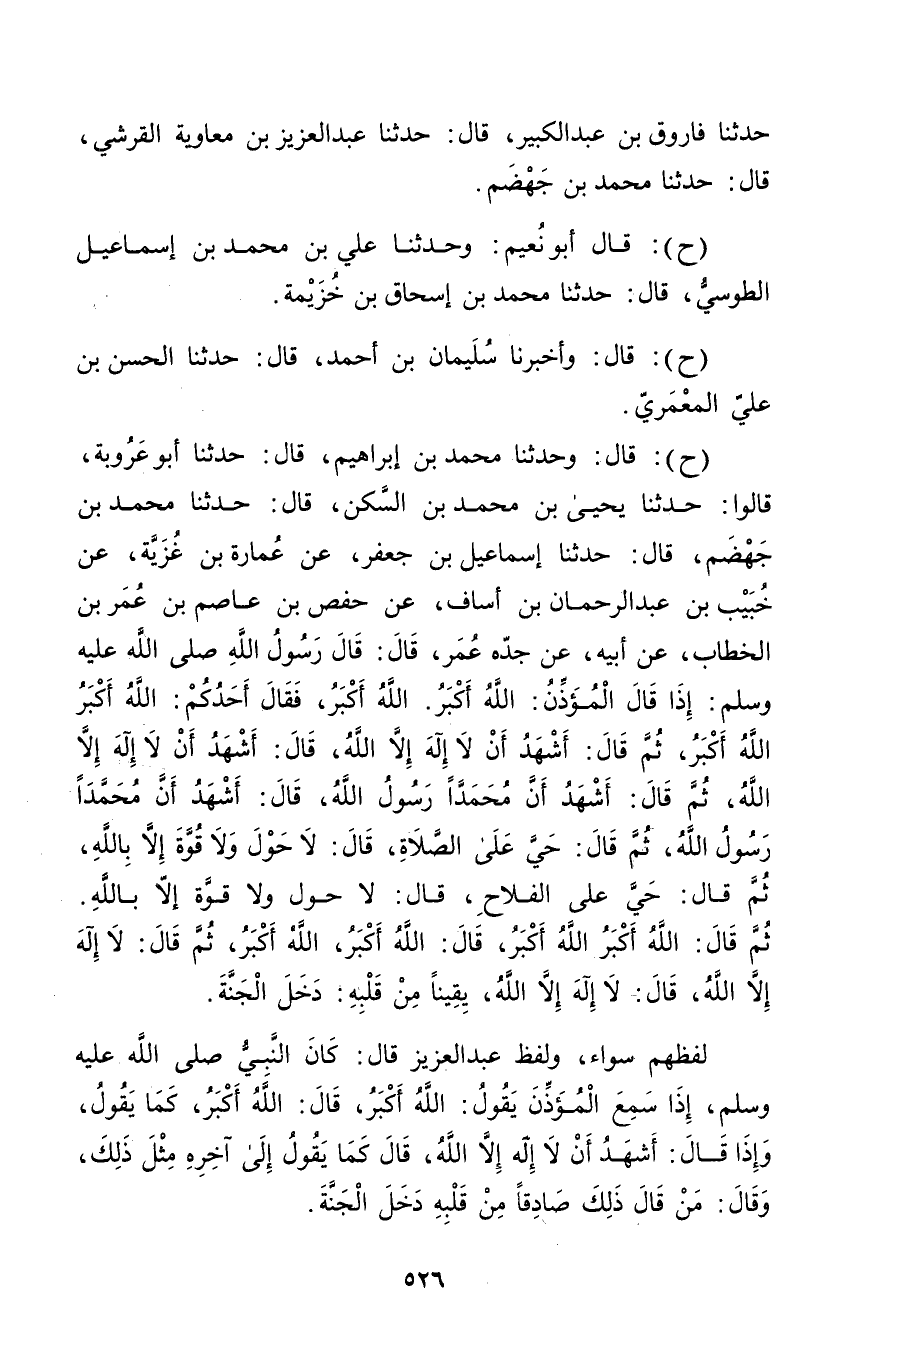 حدثنا فاروق بن عبدالكبير، قال: حدثنا عبدالعزيز بن معاوية القرشي،
قال: حدثنا محمد بن جَهْضَم.
(ح): قال أبو نُعيم: وحدثنا علي بن محمد بن إسماعيل
الطوسيُّ، قال: حدثنا محمد بن إسحاق بن خُزَيْمة.
(ح): قال: وأخبرنا سُلَيمان بن أحمد، قال: حدثنا الحسن بن
عليّ المعْمَريّ.
(ح): قال: وحدثنا محمد بن إبراهيم، قال: حدثنا أبو عَرُوبة،
قالوا: حدثنا يحيىٰ بن محمد بن السَّكن، قال: حدثنا محمد بن
جَهْضَم، قال: حدثنا إسماعيل بن جعفر، عن عُمارة بن غُزَيَّة، عن
خُبَيْب بن عبدالرحمان بن أساف، عن حفص بن عاصم بن عُمَر بن
الخطاب، عن أبيه، عن جدّه عُمَر، قَالَ: قَالَ رَسُولُ اللَّهِ صلى اللَّه عليه
وسلم: إِذَا قَالَ الْمُؤَذِّنُ: اللَّهُ أَكْبَرُ. اللَّهُ أَكْبَرُ، فَقَالَ أَحَدُكُمْ: اللَّهُ أَكْبَرُ
اللَّهُ أَكْبَرُ، ثُمَّ قَالَ: أَشْهَدُ أَنْ لَا إِلَهَ إِلَّا اللَّهُ، قَالَ: أَشْهَدُ أَنْ لَا إِلَهَ إِلَّا
اللَّهُ، ثُمَّ قَالَ: أَشْهَدُ أَنَّ مُحَمَدَّاً رَسُولُ اللَّهُ، قَالَ: أَشْهَدُ أَنَّ مُحَمَّدَاً
رَسُولُ اللَّهُ، ثُمَّ قَالَ: حَيَّ عَلَىٰ الصَّلَاةِ، قَالَ: لَا حَوْلَ وَلَا قُوَّةَ إِلَّا بِاللَّهِ،
ثُمَّ قال: حَيَّ على الفلاحِ، قال: لا حول ولا قوَّة إلّا باللَّهِ.
ثُمَّ قَالَ: اللَّهُ أَكْبَرُ اللَّهُ أَكْبَرُ، قَالَ: اللَّهُ أَكْبَرُ، اللَّهْ أَكْبَرُ، ثُمَّ قَالَ: لَا إِلَهَ
إِلَّا اللَّهُ، قَالَ: لَا إِلَهَ إِلَّا اللَّهُ، يَقِيناً مِنْ قَلْبِهِ: دَخَلَ الْجَنَّةَ.
لفظهم سواء، ولفظ عبدالعزيز قال: كَانَ النَّبِيُّ صلى اللَّه عليه
وسلم، إِذَا سَمِعَ الْمُؤَذِّنَ يَقُولُ: اللَّهُ أَكْبَرُ، قَالَ: اللَّهُ أَكْبَرُ، كَمَا يَقُولُ،
وَإِذَا قَالَ: أَشهَدُ أَنْ لَا إِلَه إِلَّا اللَّهُ، قَالَ كَمَا يَقُولُ إِلَىٰ آخِرِهِ مِثْلَ ذَلِكَ،
وَقَالَ: مَنْ قَالَ ذَلِكَ صَادِقاً مِنْ قَلْبِهِ دَخَلَ الْجَنَّةَ.
٥٢٦